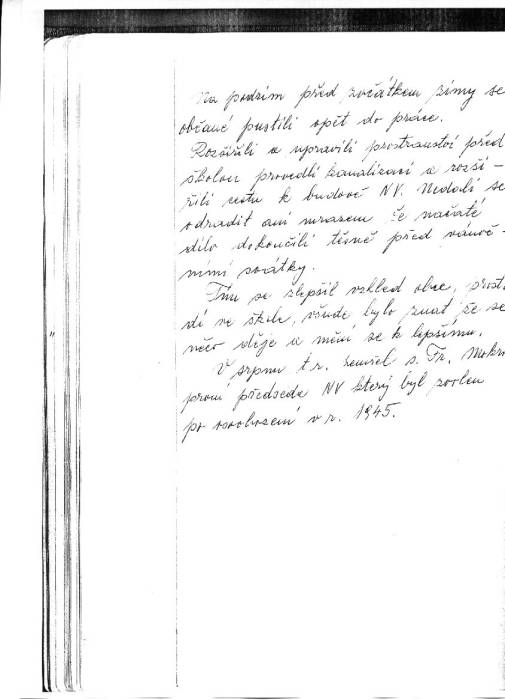 Na podzim před začátkem zimy se
občané pustili opět do práce.
Rozšířili a upravili prostranství před
školou provedli kanalizaci a rozší-
řili cestu k budově NV. Nedali se
odradit ani mrazem že načaté
dílo dokončili těsně před vánoč-
nimi svátky.
Tím se zlepšil vzhled obce, prost
dí ve škole, všude bylo znát že se
něco děje a mění se k lepšímu.
V srpnu t.r. zemřel s. Fr. Mokr
první předseda NV který byl zvolen
po osvobození v r. 1945.